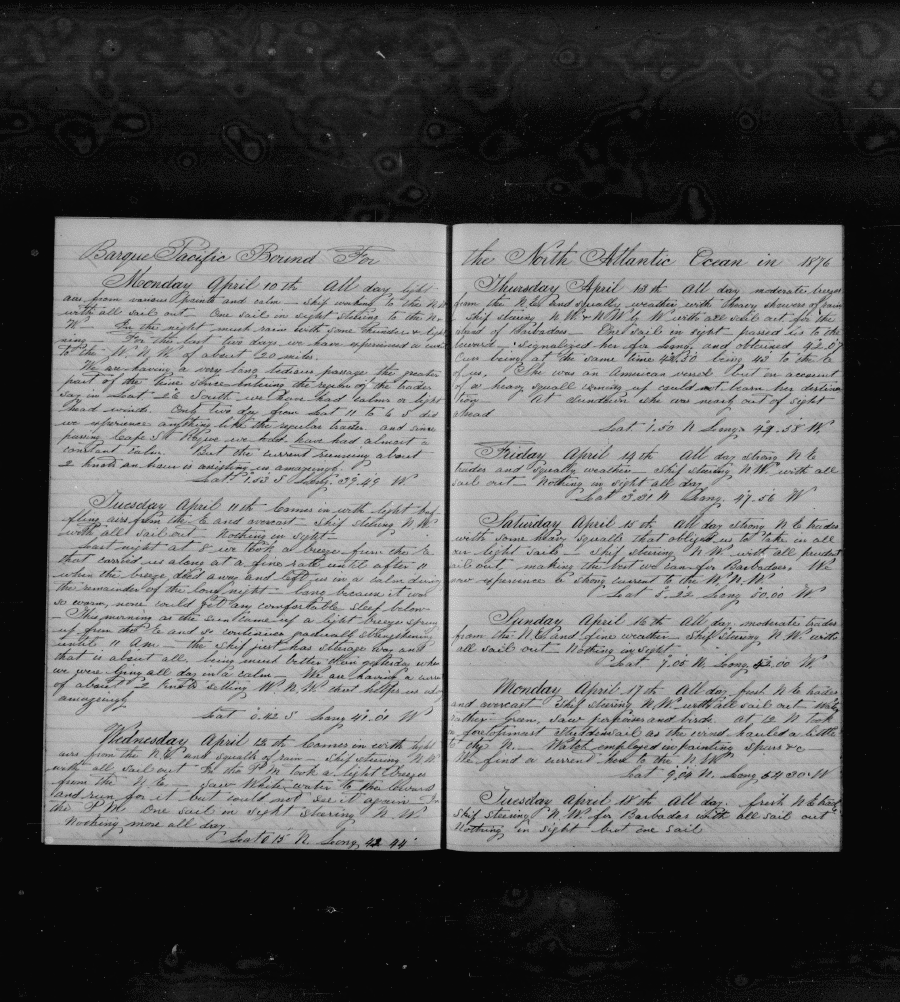 Barque Pacific Bound For
Monday April 10th All day light
airs from various points and calm - Ship working to the N W
with all sail out One sail in sight steering to the N &
W In the night much rain with some thunder & light
ning For the last five days we have experienced a current
to the W.N.W. of about 20 miles.
We are having a very long tedious passage the greater
part of the time since entering the region of the trades
say in Lat 26 South we have had calms or light
head winds. Only two dys from Lat 11 to 6 S did
we experience anything like the regular trades and since
passing Cape St Roque we have had almost a
constant calm. But the current running about
2 knots an hour is assisting us amazingly.
Lat. 1.53 S Long. 39.49 W
Tuesday April 11th Comes in with light baf
fling airs from the E and overcast - Ship steering N W
with all sail out Nothing in sight -
Last night at 8 we took a breeze from the E
that carried us along at a fine rate until after 11
when the breeze died away and left us in a calm during
the remainder of the long night - long because it was
so warm, none could get any comfortable sleep below -
- This morning as the sun came up a light breeze sprung
up from the E and so continued gradually strengthening
until 11 Am - the ship just has steerage way and
that is about all, being much better than yesterday when
we were lying all day in a calm - We are having a current
of about 2 knots setting W.N.W. that helps us along
amazingly
Lat 0.42 S Long 41.01 W
Wednesday April 12th Comes in with light
airs from the N.E. and squalls of rain - Ship steering N.W.
with all sail out In the P M. took a light breeze
from the N.E. - Saw White water to the leward
and run for it but could not see it again - In
the P M. One sail in sight steering N.W.
Nothing more all day
Lat 0 15 N. Long 42 44
the North Atlantic Ocean in 1876
Thursday April 13th All day moderate breezes
from the N.E. and squally weather with heavy showers of rain
- Ship steering N.W. & N.W by W with all sail out for the
Island of Barbados. One sail in sight - passed us to the
leward - signalized her for Long. and obtained 42.07
Ours being at the same time being 42 to the E
of us. She was an American vessel but on account
of a heavy squall coming up could not learn her destina
tion At sundown she was nearly out of sight
ahead
Lat 1.50 N Long 44.58 W
Friday April 14th All day strong N E
trades and squally weather - Ship steering N.W. with all
sail out - Nothing in sight all day
Lat 3.21 N Long. 47.56 W
Saturday April 15th All day strong N.E. trades
with some heavy squalls that obliged us to take in all
our light sails - Ship steering N W. with all prudent
sail out making the best we can for Barbados, We
now experience a strong current to the W.N.W.
Lat 5.22 Long 50.00 W
Sunday April 16th All day moderate trades
from the N.E. and fine weather - Ship steering N.W. with
all sail out Nothing in sight
Lat 7.05 N. Long 52.00 W
Monday April 17th All day fresh N E trades
and overcast Ship steering N.W. with all sail out - Water
rather green, saw porpoises and birds. At 12 N took
in foretopmast studdensail as the wind hauled a little
to the N. - Watch employed in painting spars &c
We find a current here to the N.W.
Lat 9.04 N. Long 54 30 W
Tuesday April 18th All day fresh N E trades
Ship steering N.W. for Barbados with all sail out
Nothing in sight but one sail